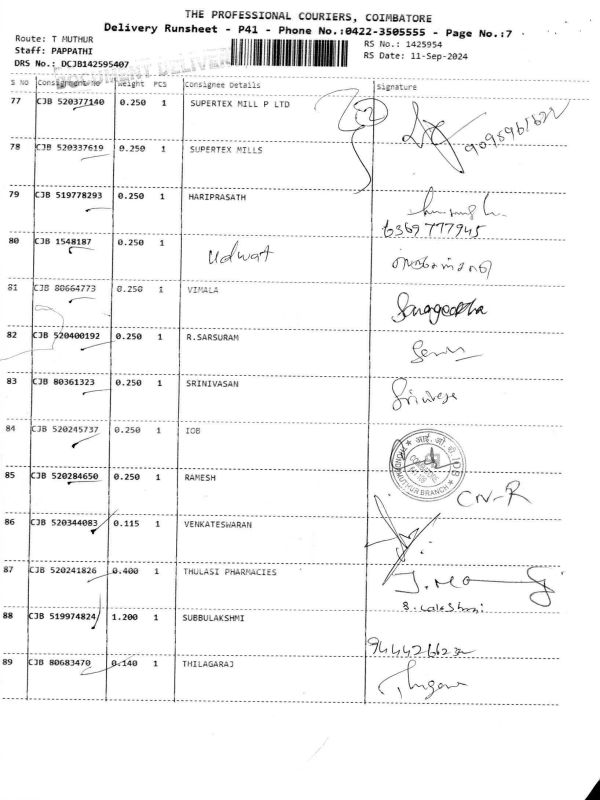 THE PROFESSIONAL COURIERS, COIMBATORE
Delivery Runsheet - P41 - Phone No.:0422-3505555 - Page No.:7
Route: T MUTHUR
RS No.: 1425954
Staff: PAPPATHI
RS Date: 11-Sep-2024
DRS No.: DCJB142595407
DOCUMENT DELIVER
S NO Consignment No Weight PCS Consignee Details Signature
77 CJB 520377140 0.250 1 SUPERTEX MILL P LTD
78 CJB 520337619 0.250 1 SUPERTEX MILLS
79 CJB 519778293 0.250 1 HARIPRASATH
6369777945
80 CJB 1548187 0.250 1 Udwat
81 CJB 80664773 0.250 1 VIMALA Sangeetha
82 CJB 520400192 0.250 1 R.SARSURAM
83 CJB 80361323 0.250 1 SRINIVASAN
84 CJB 520245737 0.250 1 IOB
आई. ओ. बी IOB
MUTHUR BRANCH
85 CJB 520284650 0.250 1 RAMESH CN-R
86 CJB 520344083 0.115 1 VENKATESWARAN
87 CJB 520241826 0.400 1 THULASI PHARMACIES
88 CJB 519974824 1.200 1 SUBBULAKSHMI
89 CJB 80683470 0.140 1 THILAGARAJ